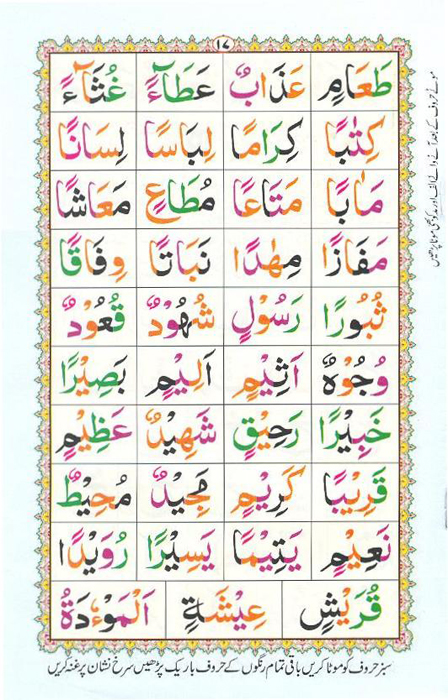 ١٧
طَعَامٍ عَذَابٌ عَطَآءً غُثَآءً
كِتٰبًا كِرَامًا لِبَاسًا لِسَانًا
مَاٰبًا مَتَاعًا مُطَاعٍ مَعَاشًا
مَفَازًا مِهٰدًا نَبَاتًا وِفَاقًا
ثُبُورًا رَسُولٍ شُهُودٌ قُعُودٌ
وُجُوهٌ اَثِيْمٍ اَلِيْمٍ بَصِيْرًا
خَبِيْرًا رَحِيْقٍ شَهِيْدٌ عَظِيْمٍ
قَرِيْبًا كَرِيْمٍ مَجِيْدٌ مُحِيْطٌ
نَعِيْمٍ يَتِيْمًا يَسِيْرًا رُوَيْدًا
قُرَيْشٍ عِيْشَةٍ اَلْمَوْءٗدَةُ
سبز حروف کو موٹا کریں باقی تمام رنگوں کے حروف باریک پڑھیں سرخ نشان پر غنہ کریں
موٹے حروف کے بعد آنے والے الف اور مد کو بھی موٹا پڑھیں